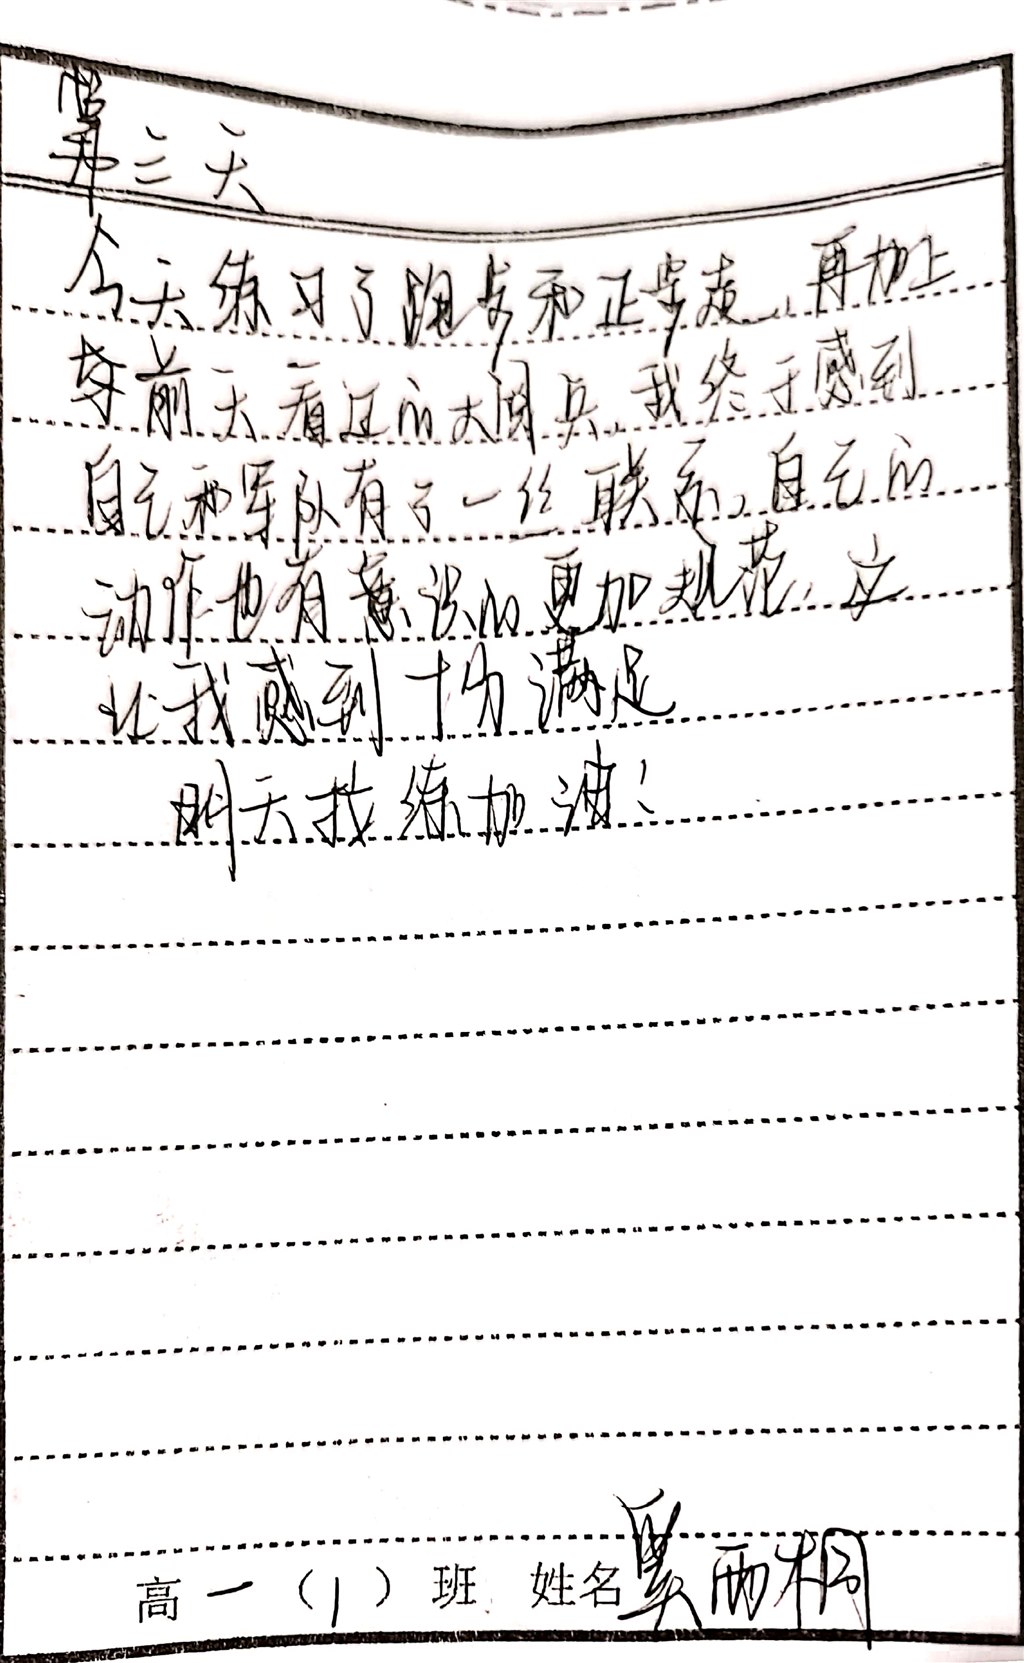 第三天
今天练习了跑步和正步走,再加上
前天看过的大阅兵,我终于感到
自己和军队有了一丝联系,自己的
动作也有意识的更加规范,这
让我感到十分满足
明天找练加油!
高一(1)班 姓名 吴雨桐